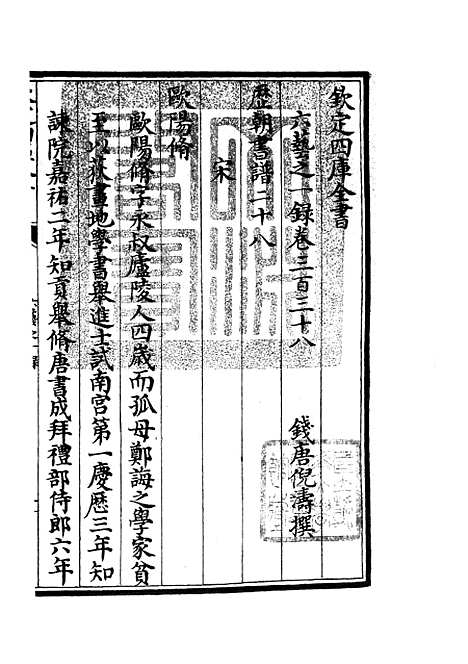 欽定四庫全書
六藝之一録卷三百三十八
錢唐倪濤撰
歴朝書譜二十八
宋
歐陽脩
歐陽脩字永叔廬陵人四歲而孤母鄭誨之學家貧
至以荻畫地學書舉進士試南宫第一慶歴三年知
諫院嘉祐二年知貢舉脩唐書成拜禮部侍郎六年